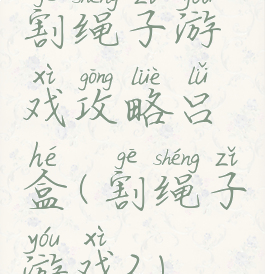 gē shéng zǐ yóu
割绳子游
xì gōng lüè lǚ
戏攻略吕
hé gē shéng zǐ
盒(割绳子
yóu xì
游戏2)